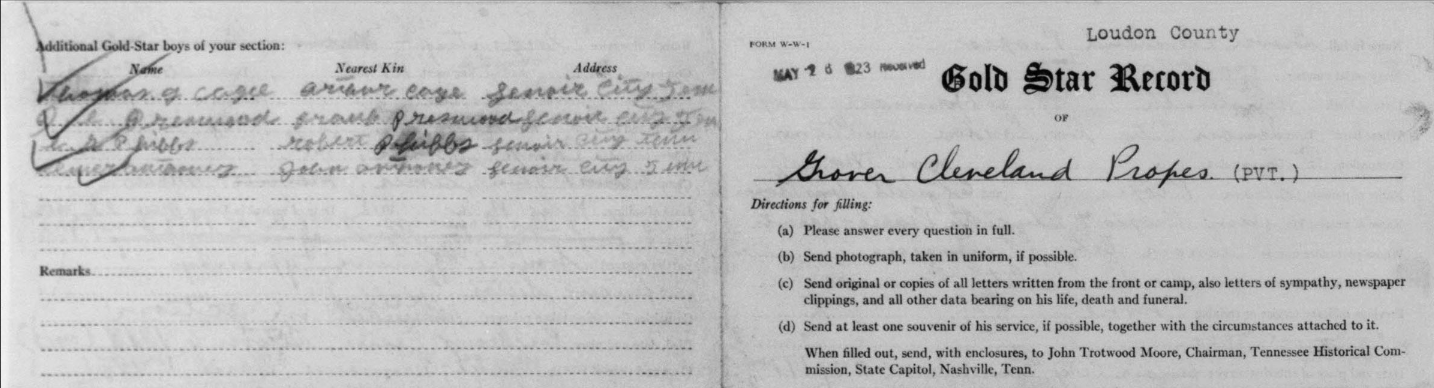 Additional Gold-Star boys of your section:
Name Nearest Kin Address
Thomas g cagle cagle Lenoir City Tenn
frank Lenoir city Tenn
Phibbs robert Phibbs Lenoir City Tenn
John Lenoir City Tenn
Remarks
Loudon County
FORM W-W-1
MAY 26 1923 Received
Gold Star Record
OF
Grover Cleveland Propes. (PVT.)
Directions for filling:
(a) Please answer every question in full.
(b) Send photograph, taken in uniform, if possible.
(c) Send original or copies of all letters written from the front or camp, also letters of sympathy, newspaper
clippings, and all other data bearing on his life, death and funeral.
(d) Send at least one souvenir of his service, if possible, together with the circumstances attached to it.
When filled out, send, with enclosures, to John Trotwood Moore, Chairman, Tennessee Historical Com-
mission, State Capitol, Nashville, Tenn.